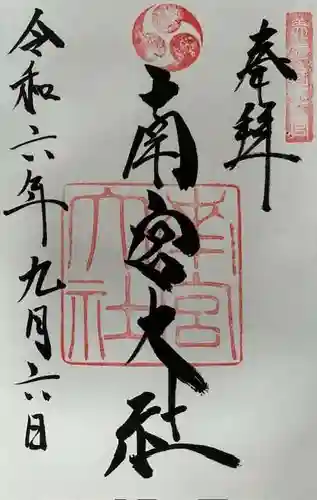 奉拝
南宮大社
令和六年九月六日
南宮大社